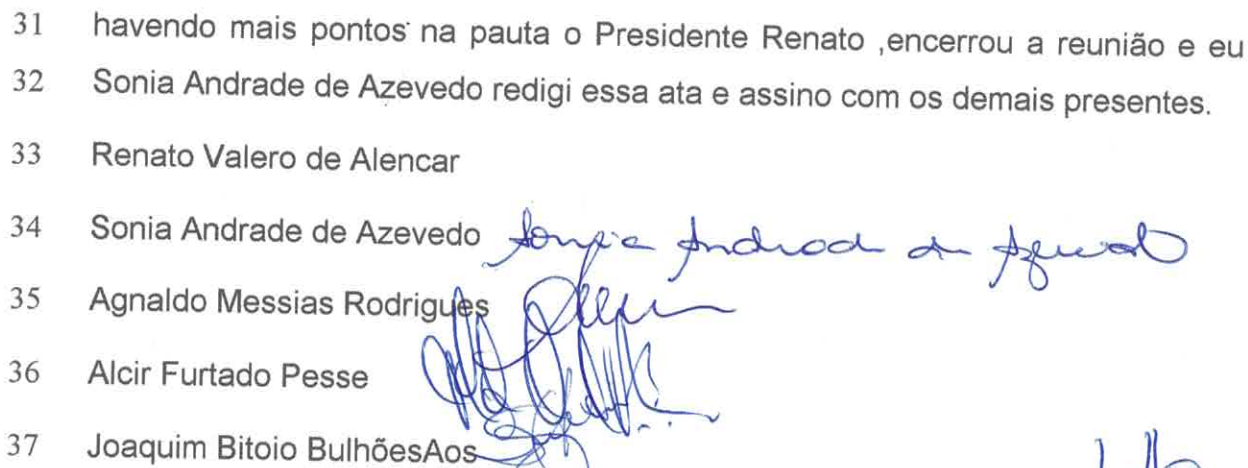 31 havendo mais pontos na pauta o Presidente Renato ,encerrou a reunião e eu
32 Sonia Andrade de Azevedo redigi essa ata e assino com os demais presentes.
33 Renato Valero de Alencar
34 Sonia Andrade de Azevedo Sonia Andrade de Azevedo
35 Agnaldo Messias Rodrigues
36 Alcir Furtado Pesse
37 Joaquim Bitoio BulhõesAos